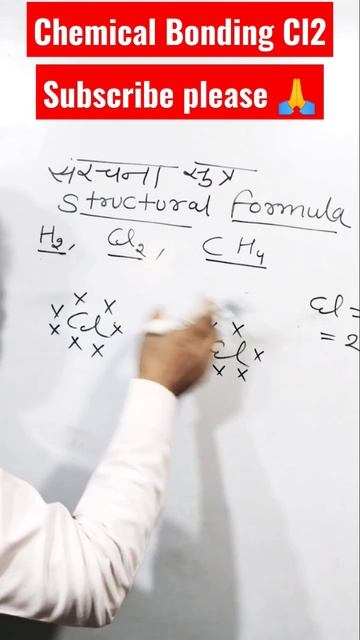 Chemical Bonding Cl2
Subscribe please 🙏
संरचना सूत्र
Structural formula
H₂, Cl₂, CH₄
Cl =
= 2
x x
x Cl x
x
x x
x
Cl x
x x